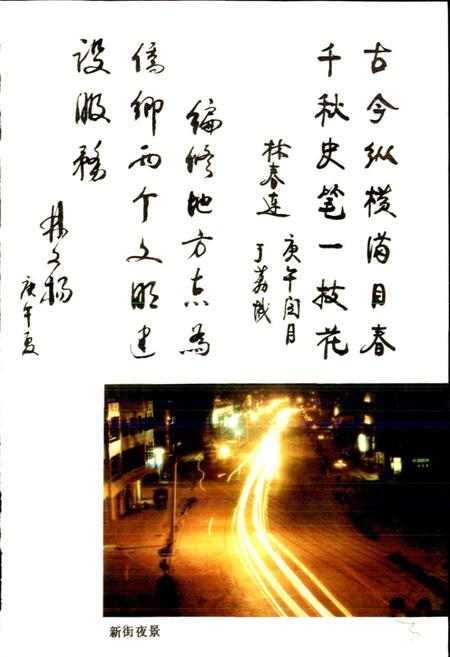 古今纵横满目春
千秋史笔一枝花
林春连
庚午闰月
于荔城
编修地方志为
侨乡两个文明建
设服务
林文杨
庚午夏
新街夜景